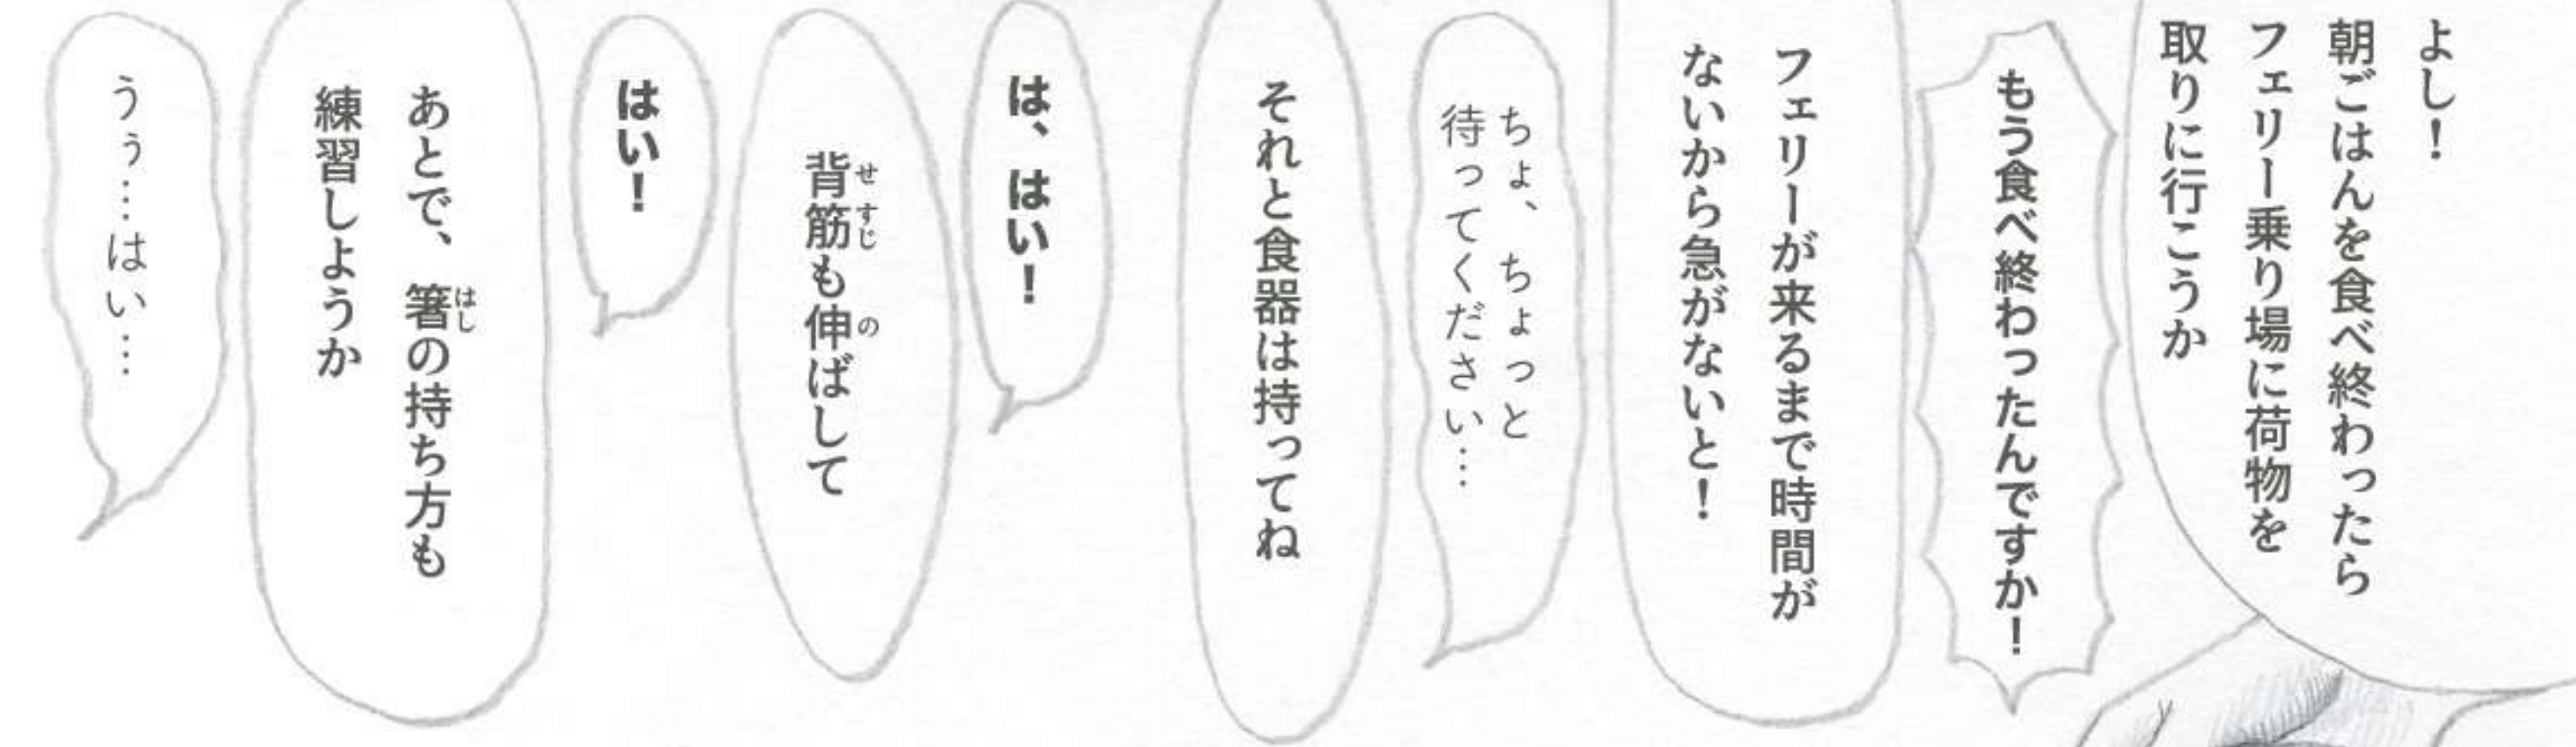 よし！
朝ごはんを食べ終わったら
フェリー乗り場に荷物を
取りに行こうか
もう食べ終わったんですか！
フェリーが来るまで時間が
ないから急がないと！
ちょ、ちょっと
待ってください…
それと食器は持ってね
は、はい！
背筋も伸ばして
せすじ
の
はい！
あとで、箸の持ち方も
はし
練習しようか
うぅ…はい…